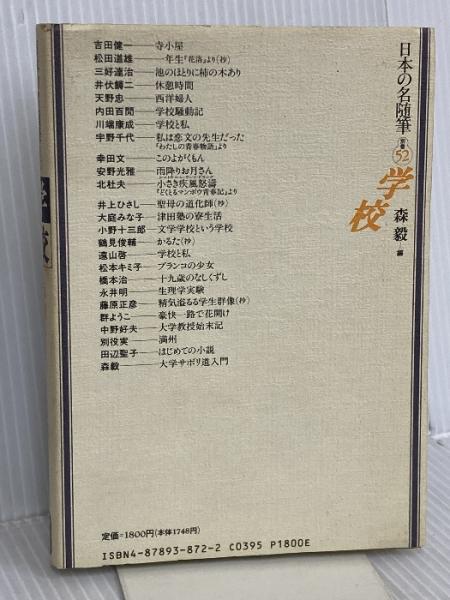 日本の名随筆
別巻
52
学校
森毅
編
吉田健一──寺小屋
松田道雄──一年生『花洛』より(抄)
三好達治──池のほとりに柿の木あり
井伏鱒二──休憩時間
天野忠──西洋婦人
内田百閒──学校騒動記
川端康成──学校と私
宇野千代──私は恋文の先生だった
『わたしの青春物語』より
幸田文──このよがくもん
安野光雅──雨降りお月さん
北杜夫──小さき疾風怒濤
『どくとるマンボウ青春記』より
井上ひさし──聖母の道化師(抄)
大庭みな子──津田塾の寮生活
小野十三郎──文学学校という学校
鶴見俊輔──かるた(抄)
遠山啓──学校と私
松本キミ子──ブランコの少女
橋本治──十九歳のなしくずし
永井明──生理学実験
藤原正彦──精気溢るる学生群像(抄)
群ようこ──豪快一路で花開け
中野好夫──大学教授始末記
別役実──満州
田辺聖子──はじめての小説
森毅──大学サボリ道入門
定価=1800円(本体1748円)
ISBN4-87893-872-2 C0395 P1800E
学校